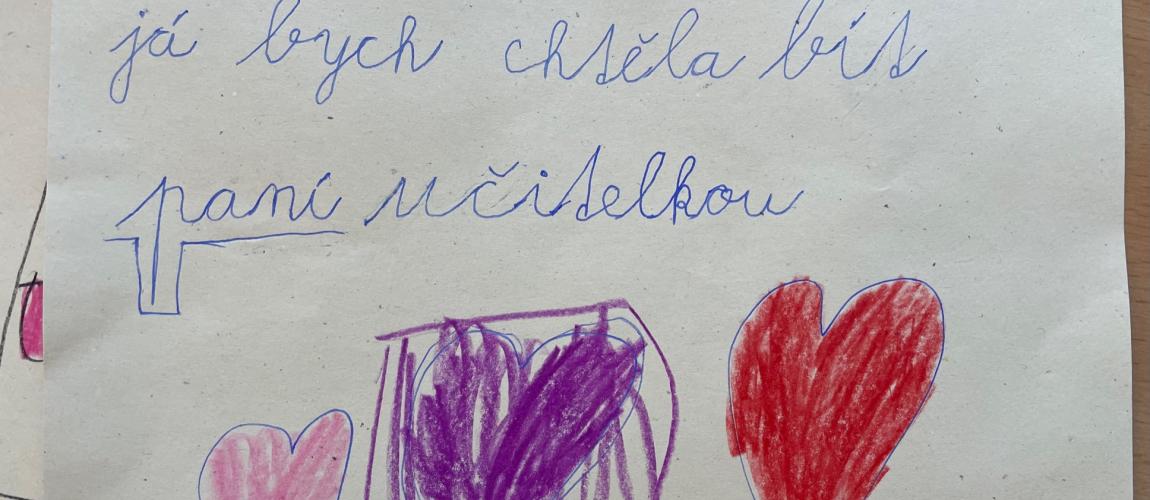 já bych chtěla bít
paní učitelkou